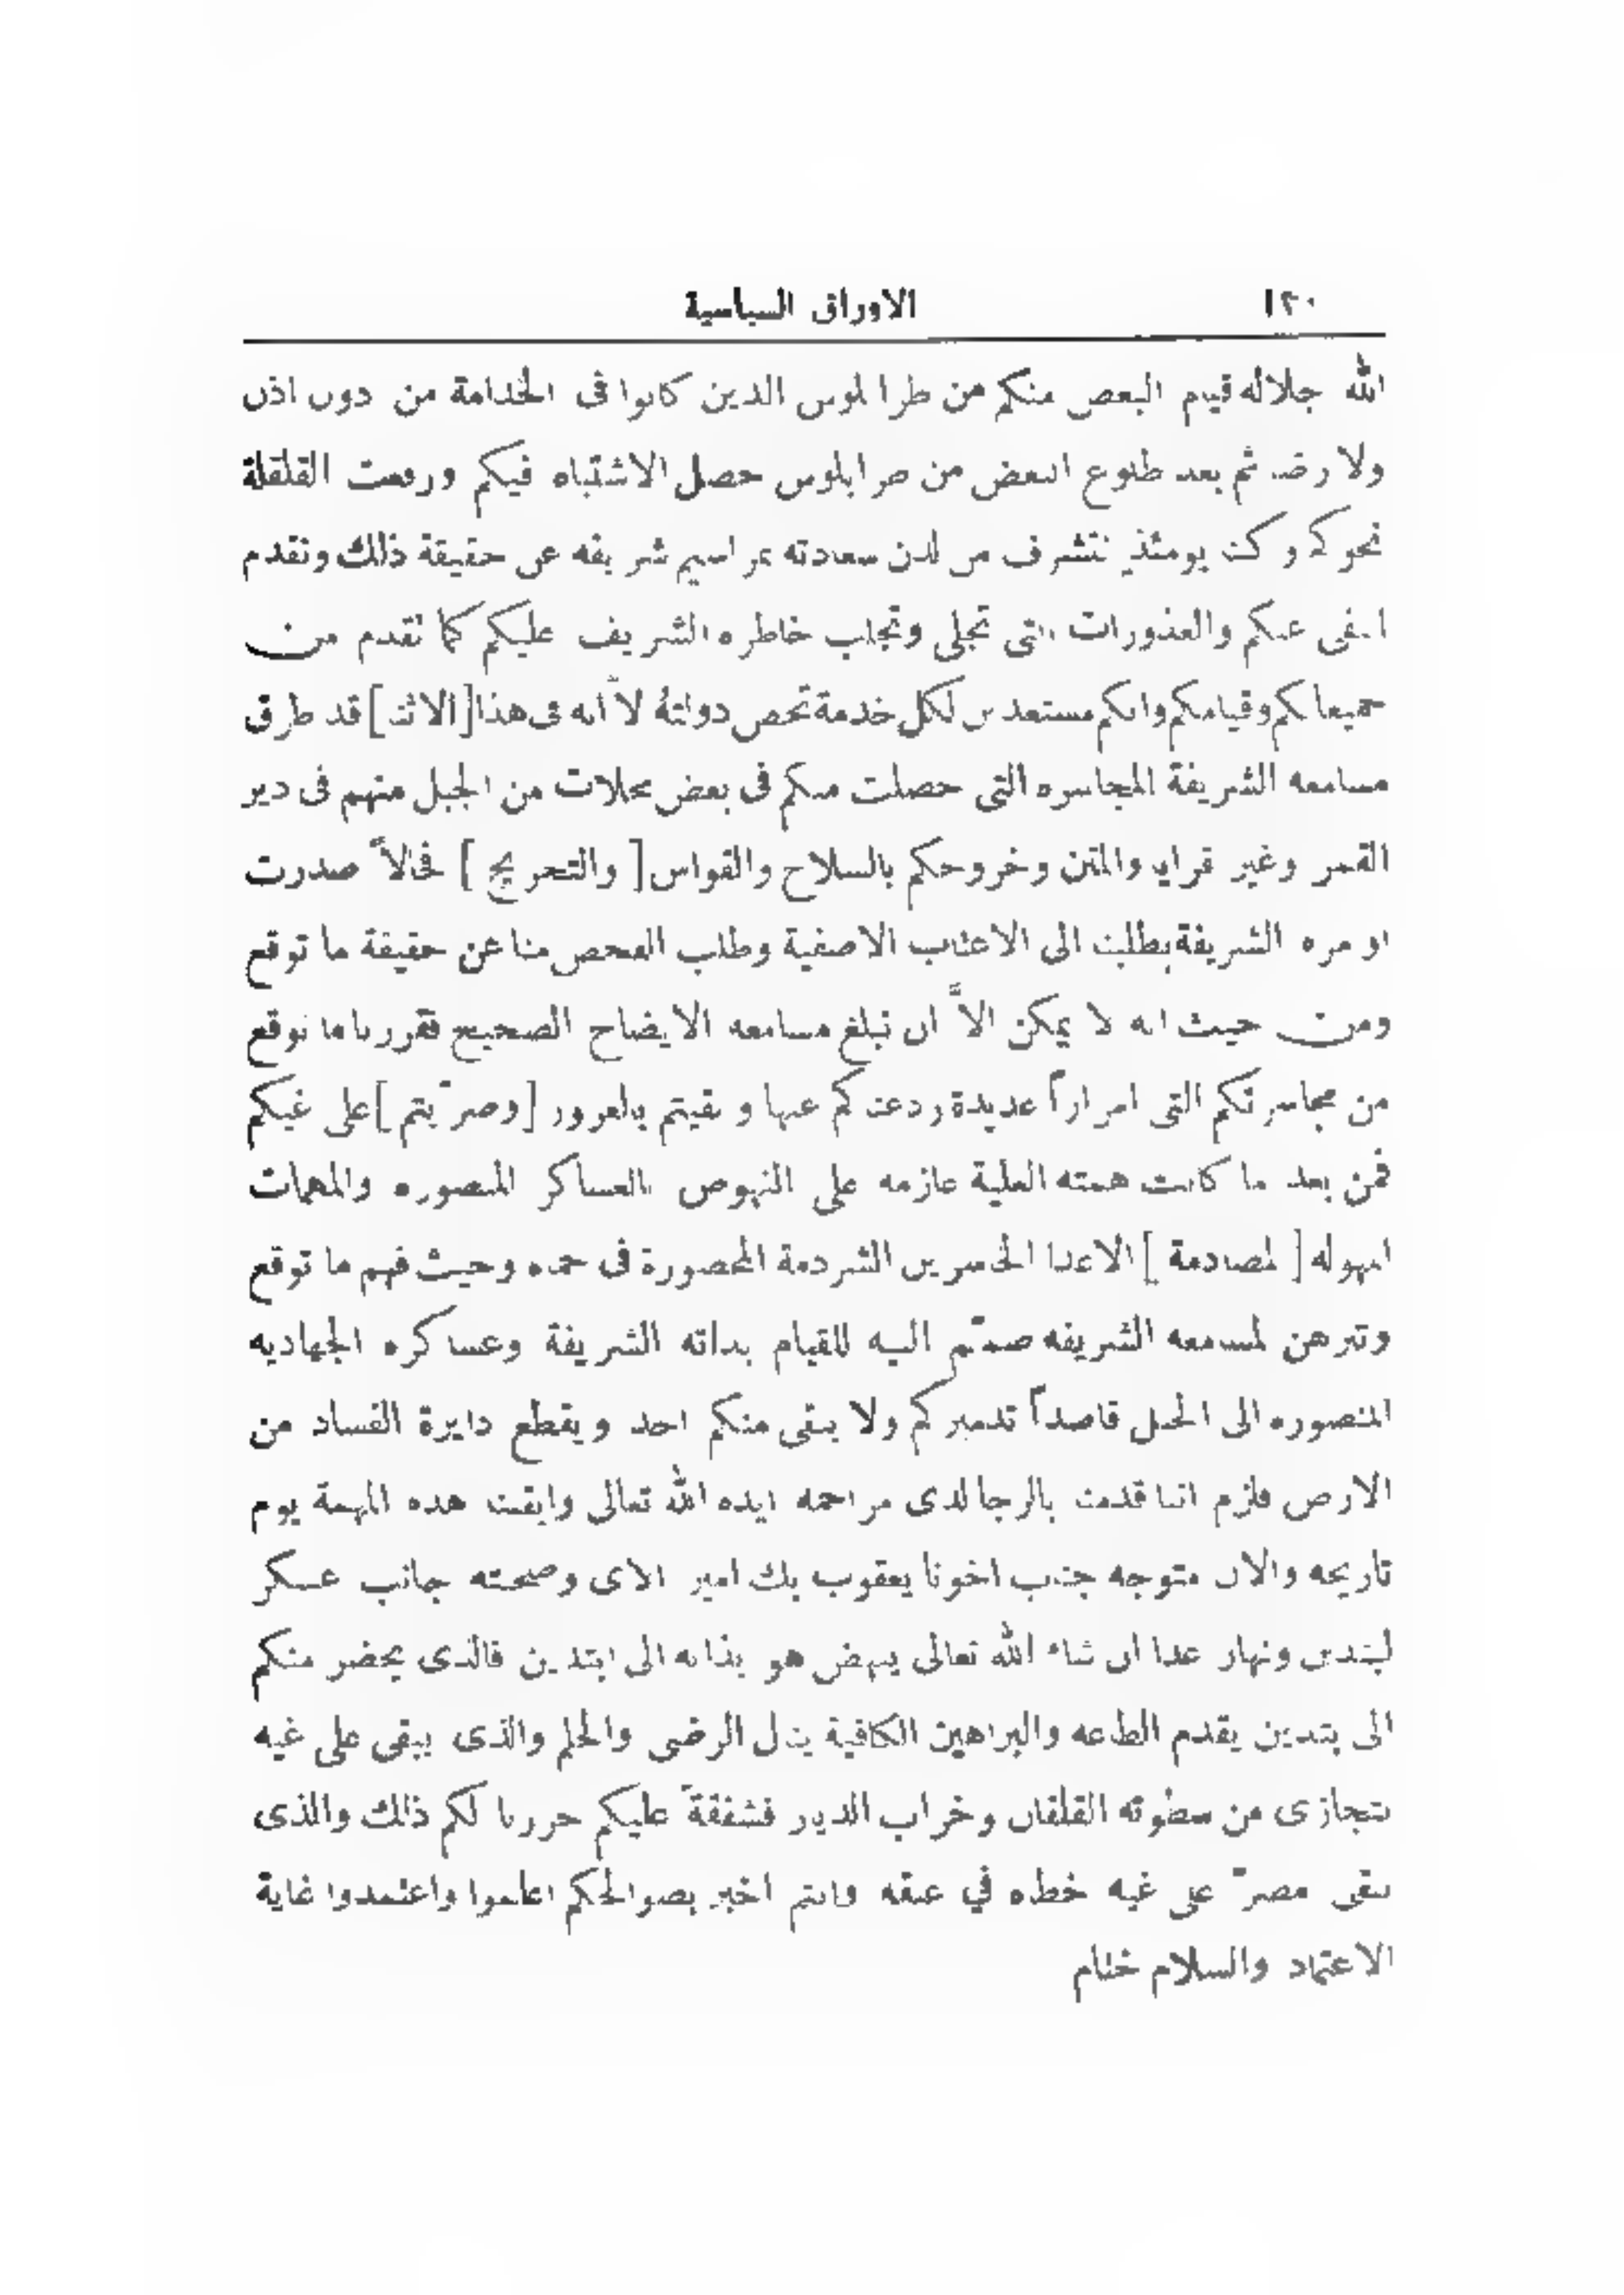 ١٢٠ الاوراق السياسية
الله جلاله قيام البعض منكم من طرابلوس الذين كانوا فى الخدامة من دون اذن
ولا رضا ثم بعد طلوع البعض من طرابلوس حصل الاشتباه فيكم ورفعت القلقلة
نحوكم وكنا يومئذٍ نتشرف من لدن سعادته بمراسيم شريفه عن حقيقة ذلك ونقدم
النفى عنكم والعذورات التى تجلى وتجلب خاطره الشريف عليكم كما تقدم من
جميعاتكم وقيامكم وانكم مستعدين لكل خدمة تخص دولتهُ الاَّ انه فى هذا [الاثنا] قد طرق
مسامعه الشريفة المجاسره التى حصلت منكم فى بعض محلات من الجبل منهم فى دير
القمر وغير قرايا والمتن وخروجكم بالسلاح والقواس [والتحريج] فحالاً صدرت
اوامره الشريفة بطلبنا الى الاعتاب الاصفية وطلب الفحص منا عن حقيقة ما توقع
ومن حيث انه لا يمكن الاَّ ان نبلغ مسامعه الايضاح الصحيح فقررنا ما توقع
من مجاسرتكم التى امراراً عديدة ردعناكم عنها وبقيتم بالغرور [وصرّيتم] على غيكم
فمن بعد ما كانت همته العلية عازمه على النهوض بالعساكر المنصوره والمهمات
المهوله [لمصادمة] الاعدا الخاسرين الشردمة المحصورة فى حمه وحيث فهم ما توقع
وتبرهن لمسامعه الشريفه صمّم اليه للقيام بداته الشريفة وعساكره الجهاديه
المنصوره الى الجبل قاصداً تدميركم ولا يبقى منكم احد ويقطع دايرة الفساد من
الارض فلزم اننا قدمنا بالرجا لدى مراحمه ايده الله تعالى وابقينا هده المهمة يوم
تاريخه والان متوجه جناب اخونا يعقوب بك امير الاى وصحبته جانب عسكر
لبتدين ونهار غدا ان شاء الله تعالى ينهض هو بذاته الى ابتدين فالذى يحضر منكم
الى بتدين يقدم الطاعه والبراهين الكافية ينال الرضى والحلم والذى يبقى على غيه
يتجازى من سطوته القلقان وخراب الديار فشفقةً عليكم حررنا لكم ذلك والذى
يبقى مصرّ على غيه خطاه في عنقه وانتم اخبر بصوالحكم اعلموا واعتمدوا غاية
الاعتماد والسلام ختام